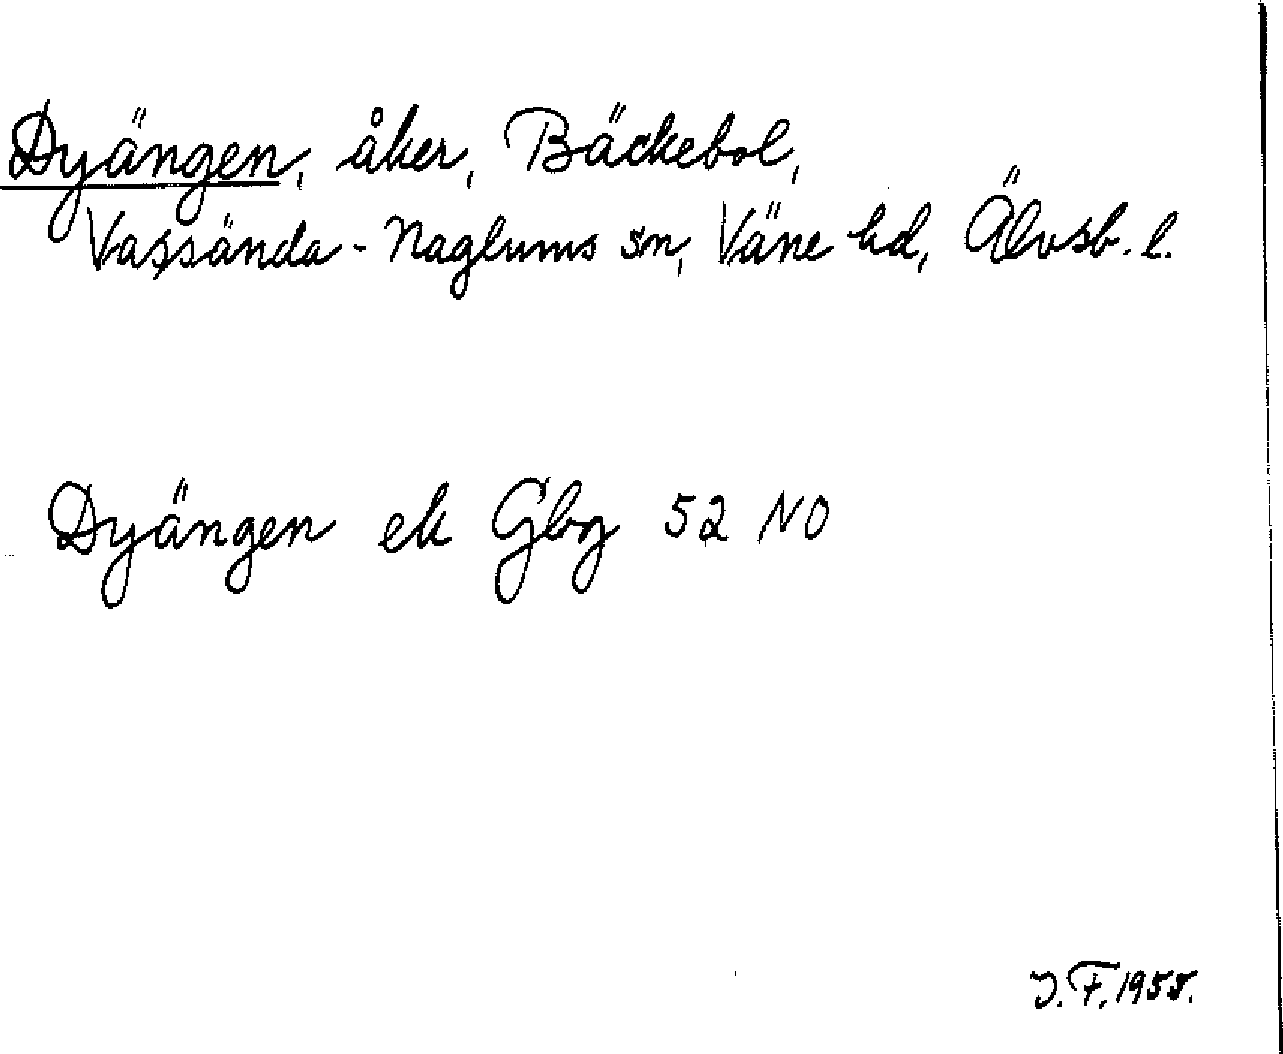 Dyängen, åker, Bäckebol,
Vassända-Naglums sn, Väne hd, Älvsb. l.
Dyängen ek Gbg 52 NO
J.F. 1955.